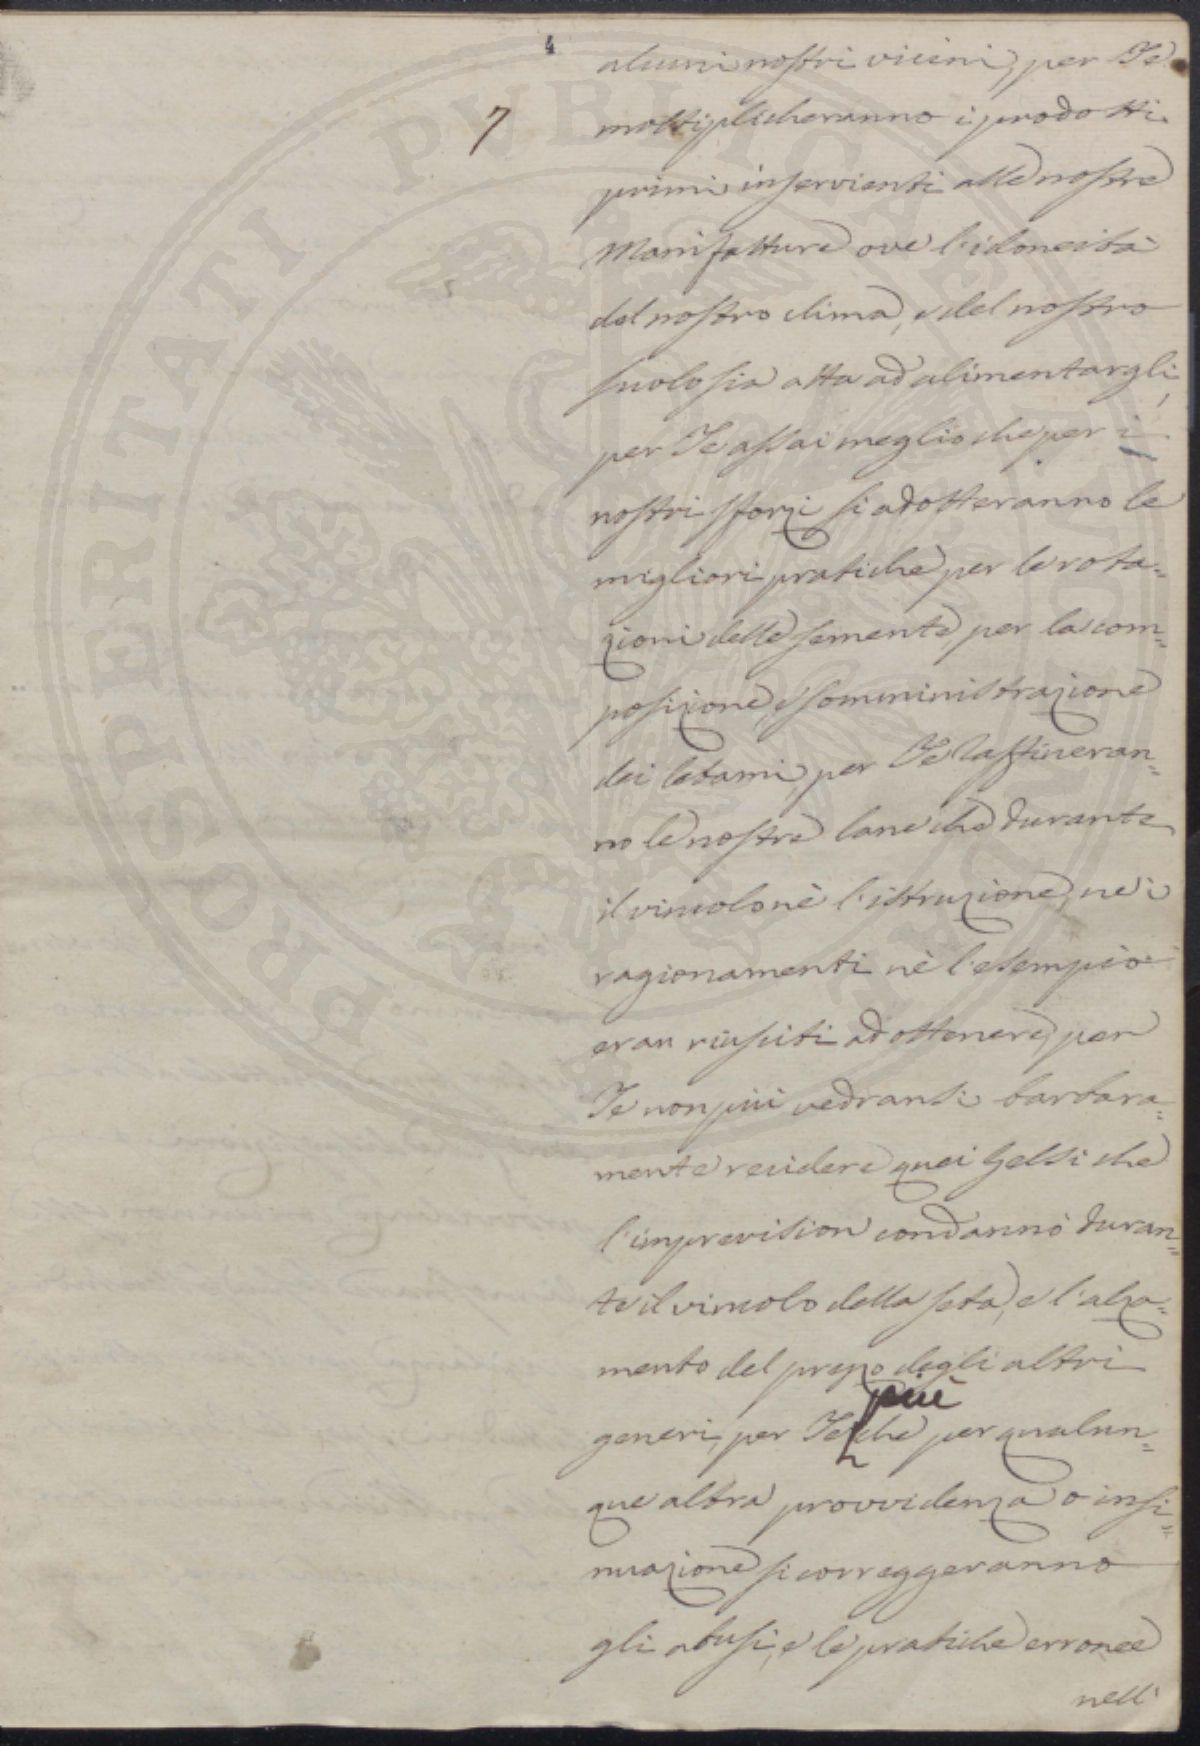 4
alcuni nostri vicini, per Te
7
moltiplicheranno i prodotti
primi inservienti alle nostre
Manifatture ove l'idoneità
del nostro clima, e del nostro
suolo sia atta ad alimentargli,
per Te assai meglio che per i
nostri sforzi si adotteranno le
migliori pratiche per le rota=
zioni delle semente, per la com=
posizione, e somministrazione
dei letami, per Te raffineran=
no le nostre lane che durante
il vincolo nè l'istruzione, nè i
ragionamenti nè l'esempio
eran riusciti ad ottenere, per
Te non più vedransi barbara=
mente recidere quei Gelsi che
l'imprevision condannò duran=
te il vincolo della seta, e l'alza=
mento del prezzo degli altri
più
generi, per Te che per qualun=
que altra provvidenza o insi=
nuazione si correggeranno
gli abusi, e le pratiche erronee
nell'
PROSPERITATI PVBLICAE